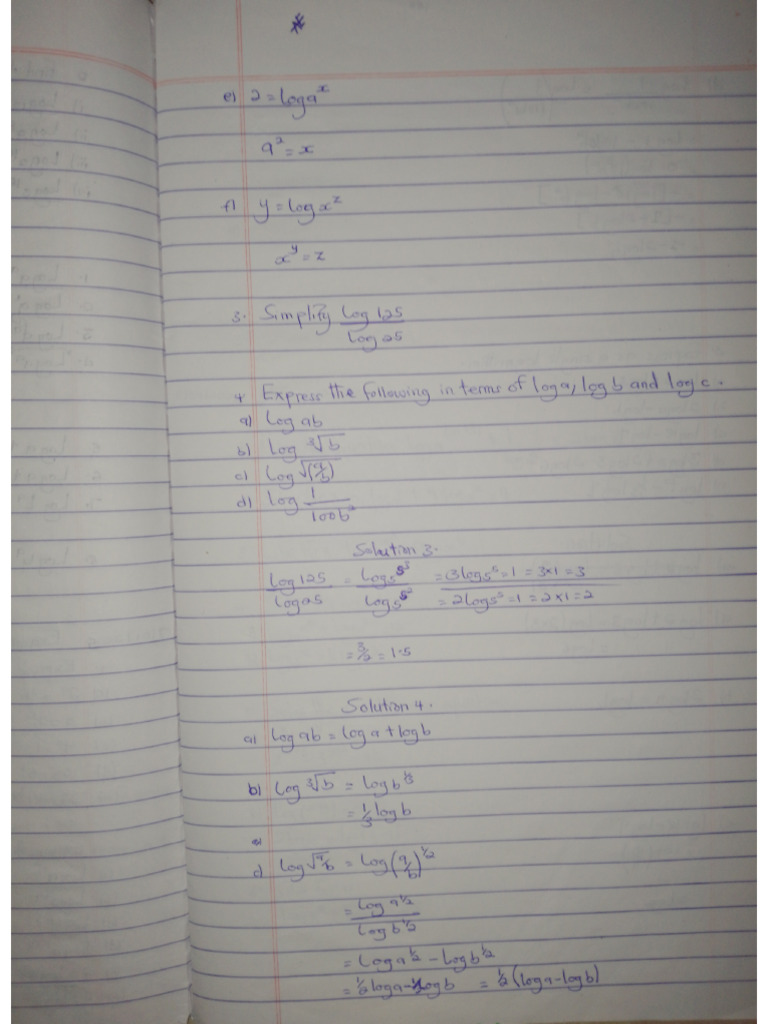 e) 2 = log a^x
a² = x
f) y = log x^z
x^y = z
3. Simplify log 125 / log 25
4 Express the following in terms of log a, log b and log c.
a) log ab
b) log ∛b
c) log √(a/b)
d) log 1/100b³
Solution 3.
log 125 / log 25 = log 5^5³ / log 5^5² = 3 log 5^5 = 1 = 3×1 = 3 / = 2 log 5^5 = 1 = 2×1 = 2
= 3/2 = 1.5
Solution 4.
a) log ab = log a + log b
b) log ∛b = log b^1/3
= 1/3 log b
c) log √a/b = log (a/b)^1/2
= log a^1/2 / log b^1/2
= log a^1/2 - log b^1/2
= 1/2 log a - 1/2 log b = 1/2 (log a - log b)